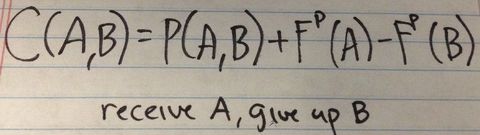 C(A,B)=P(A,B)+Fᴾ(A)-Fᴾ(B)
receive A, give up B